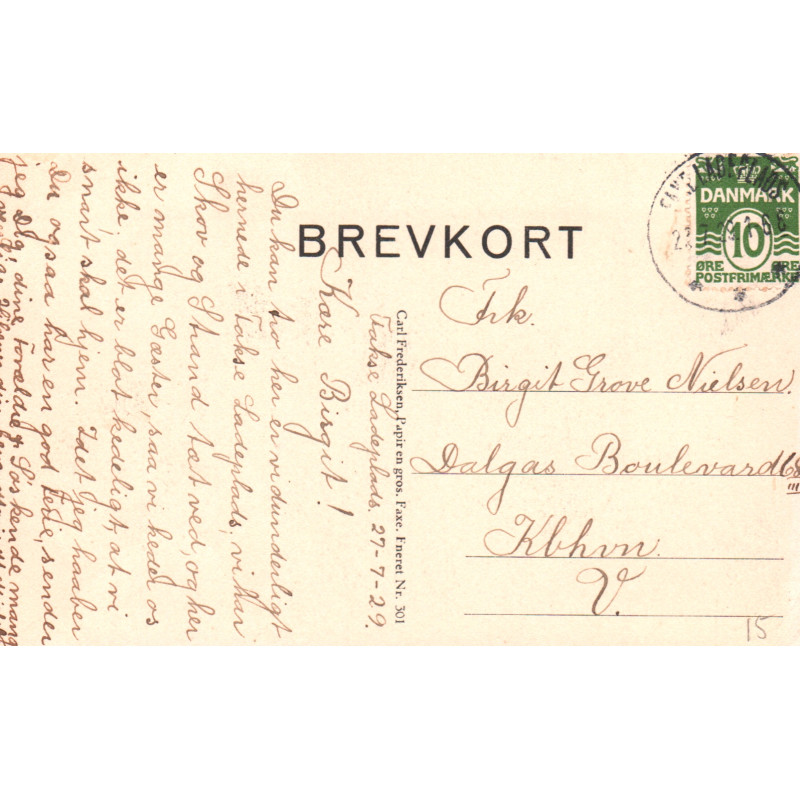 BREVKORT
DANMARK
10
ØRE ØRE
POSTFRIMÆRKE
Frk.
Birgit Grove Nielsen.
Dalgas Boulevard 68
III
Kbhvn.
V.
15
Carl Frederiksen, Papir en gros. Faxe. Eneret Nr. 301
Fakse Ladeplads. 27-7-29.
Kære Birgit!
Du kan tro her er vidunderligt
hernede i Fakse Ladeplads, vi har
Skov og Strand tæt ved, og her
er mange Gæster, saa vi keder os
ikke, det er blot kedeligt, at vi
snart skal hjem. Idet jeg haaber
Du ogsaa har en god Ferie, sender
jeg Dig, dine Forældre & Søskende mang